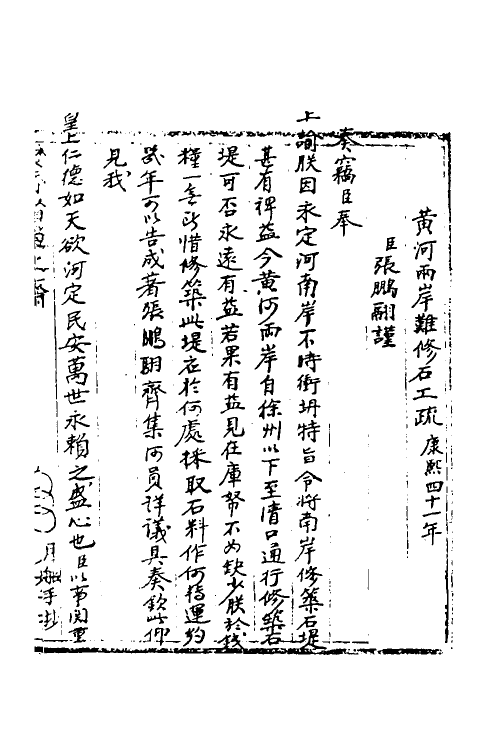 黃河兩岸難修石工疏康熙四十一年
臣張鵬翮謹
奏竊臣奉
上諭朕因永定河南岸不時衝坍特旨令將南岸修築石堤
甚有裨益今黄河兩岸自徐州以下至清口通行修築石
堤可否永遠有益若果有益見在庫帑不為缺少朕於錢
糧一無所惜修築此堤應於何處採取石料作何轉運約
幾年可以告成著張鵬翮齊集河員詳議具奏欽此仰
見我
皇上仁德如天欲河定民安萬世永賴之盛心也臣以事関重